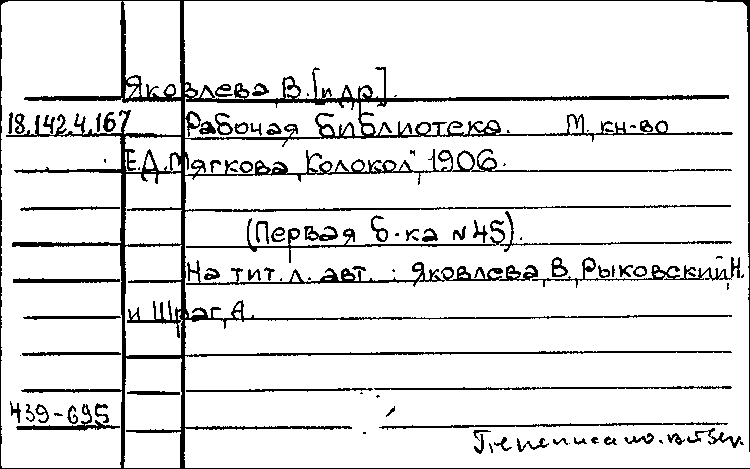 Яковлева, В. [и др.].
18.142.4.167 Рабочая библиотека. М, кн-во
Е.Д.Мягкова „Колокол", 1906.
(Первая б-ка N 45).
На тит. л. авт. : Яковлева, В., Рыковский, Н.
и Шраг, А.
439-695
Переписано.